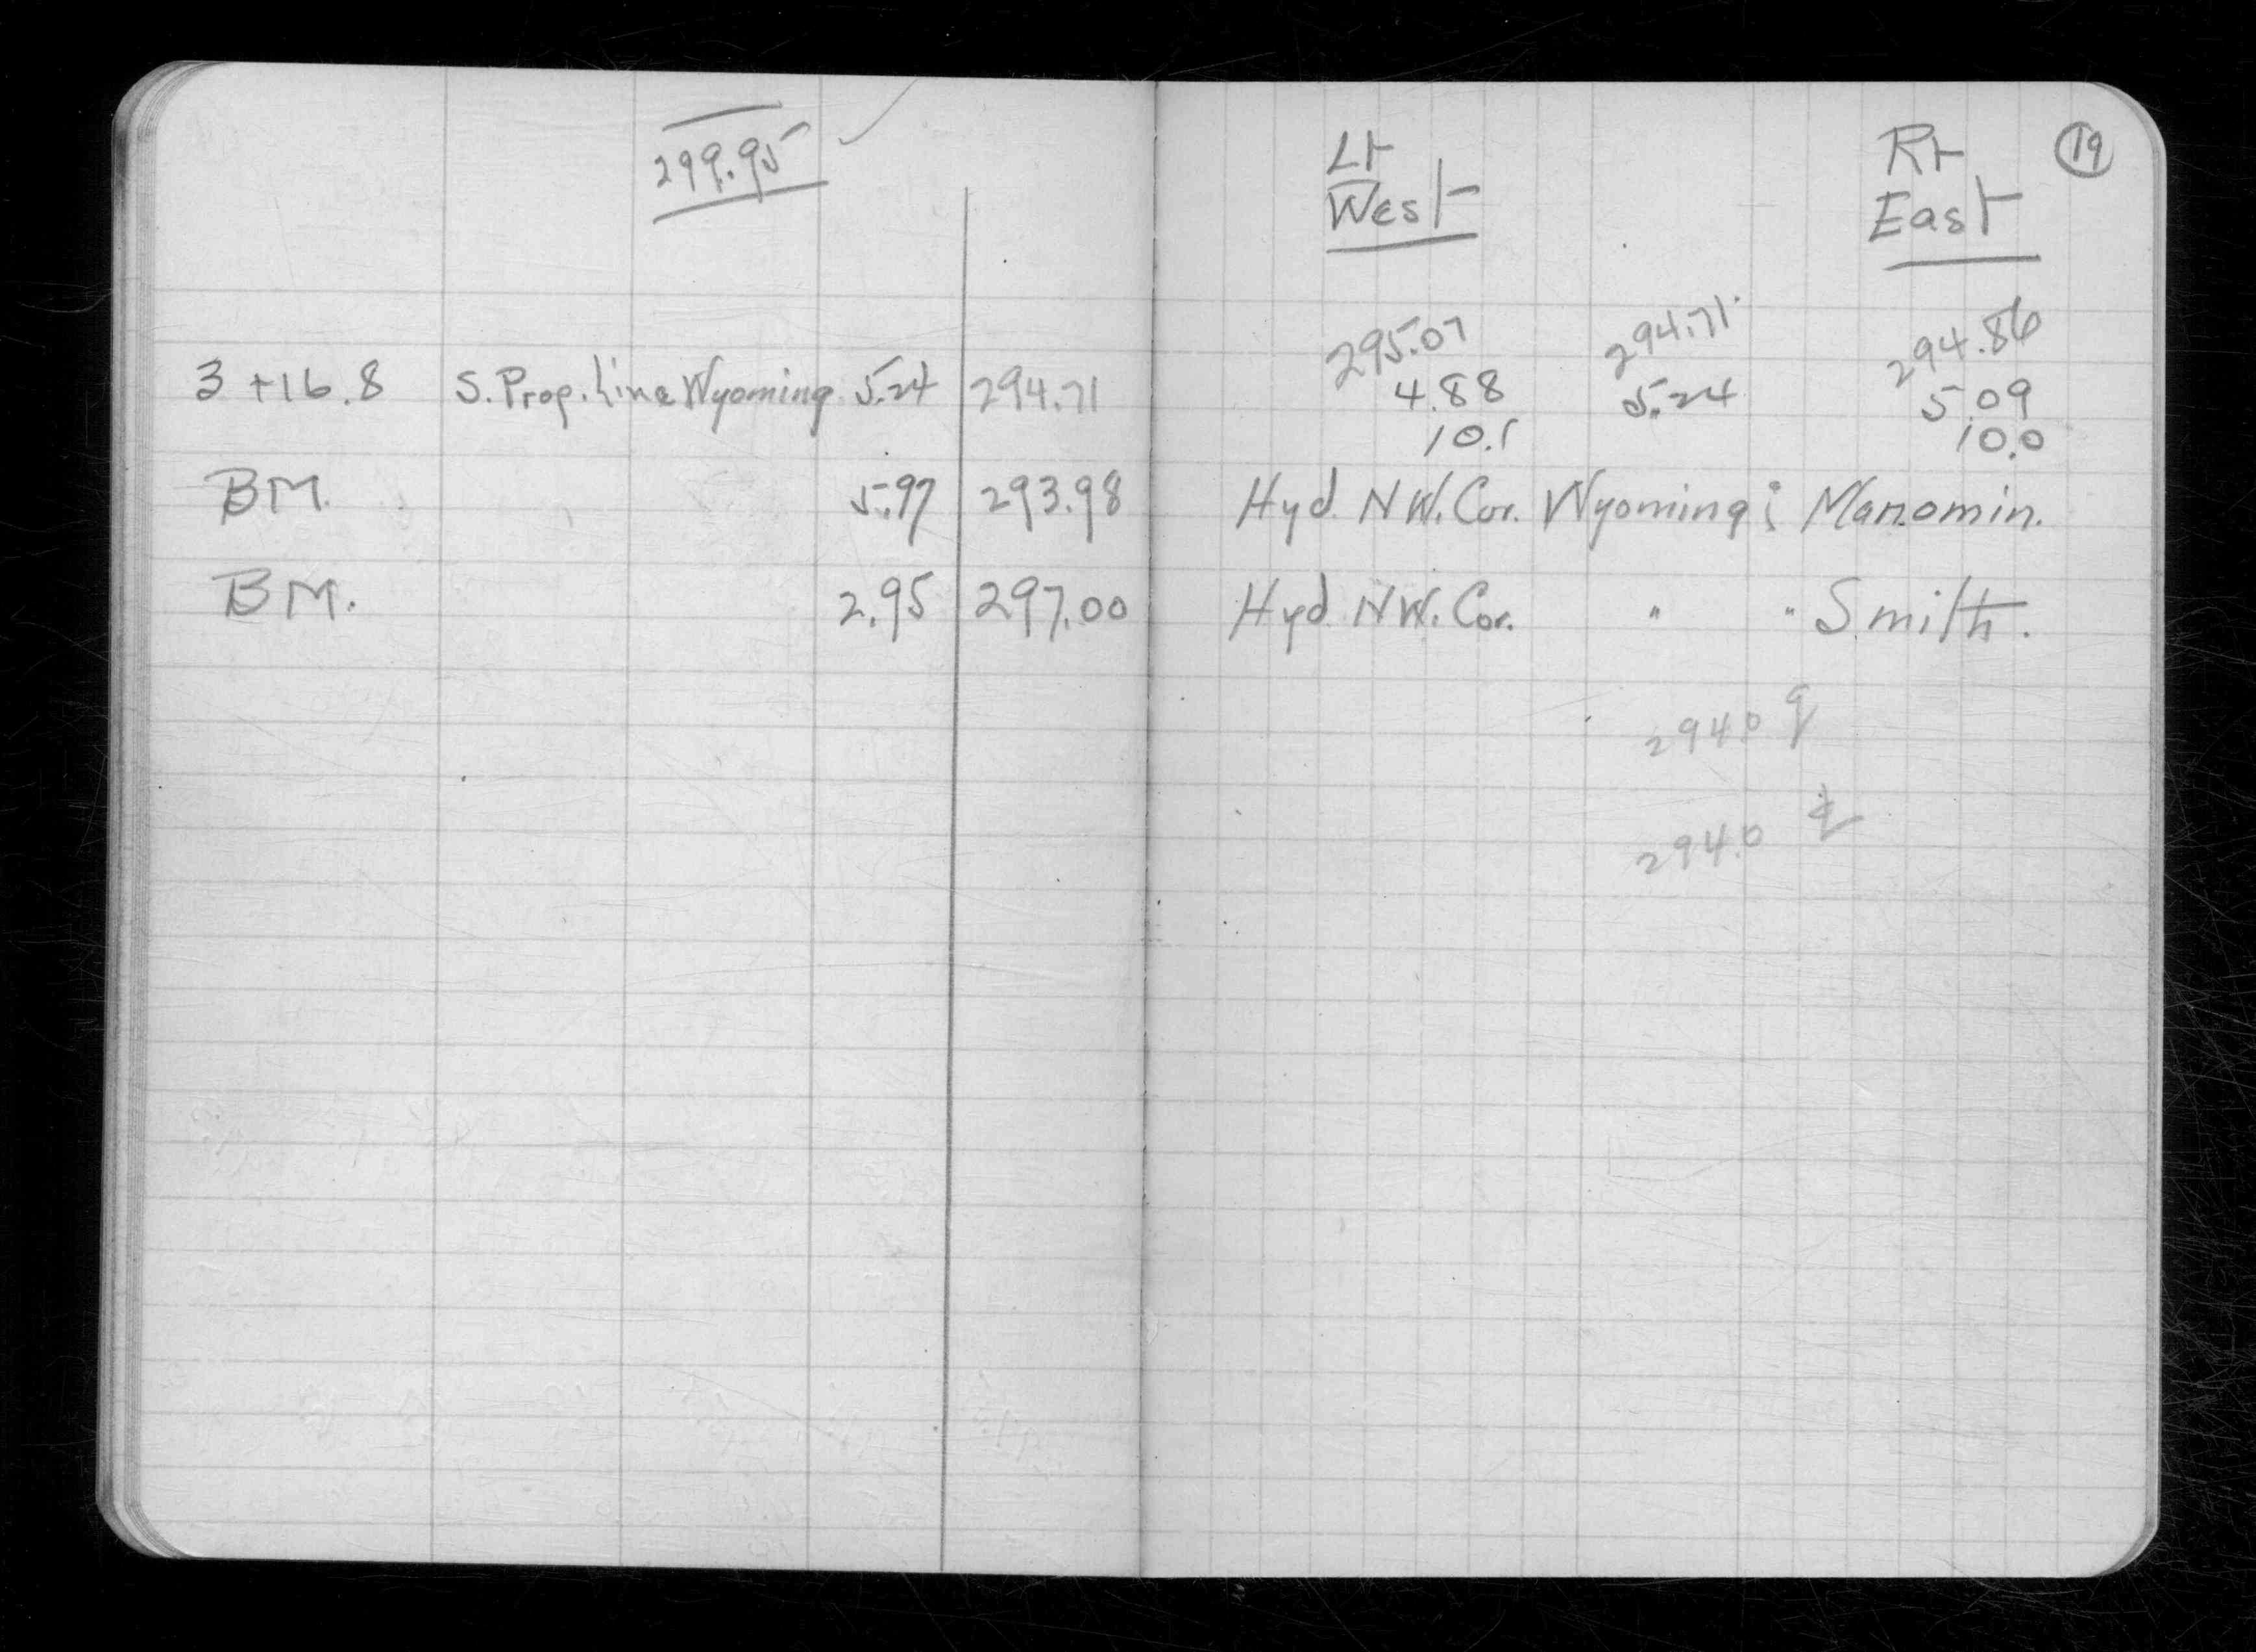 299.95
3+16.8 S. Prop. Line Wyoming 5.24 294.71
BM. 5.97 293.98
BM. 2.95 297.00
Lt Rt 19
West East
295.07 294.71 294.86
4.88 5.24 5.09
10.1 10.0
Hyd. N.W. Cor. Wyoming & Manomin.
Hyd. N.W. Cor. " " Smith.
294.0
294.0